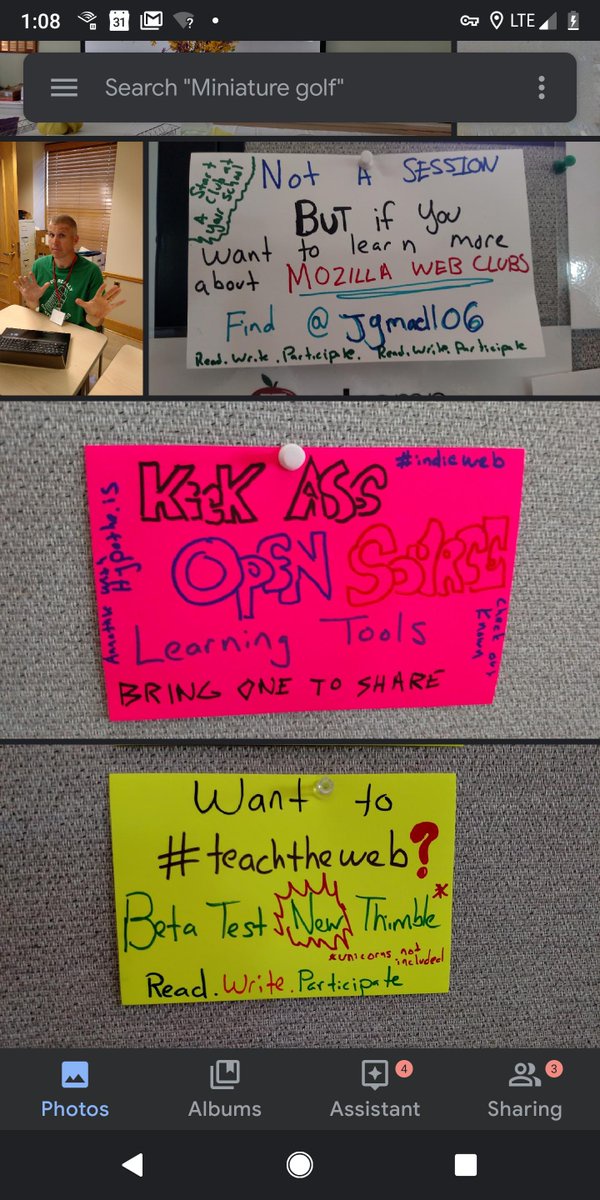 1:08
31
?
LTE
Search "Miniature golf"
A Start
Club at
your school
Not A SESSION
BUT if you
want to learn more
about MOZILLA WEB CLUBS
Find @Jgmac1106
Read. Write. Participate. Read. Write. Participate
KicK ASS
#indieweb
Annotate with
Hypothe.is
OPEN SOURCE
Learning Tools
Check out
Known
BRING ONE TO SHARE
Want to
#teachtheweb?
Beta Test New Thimble*
*unicorns not
included
Read. Write. Participate
Photos
Albums
4
Assistant
3
Sharing